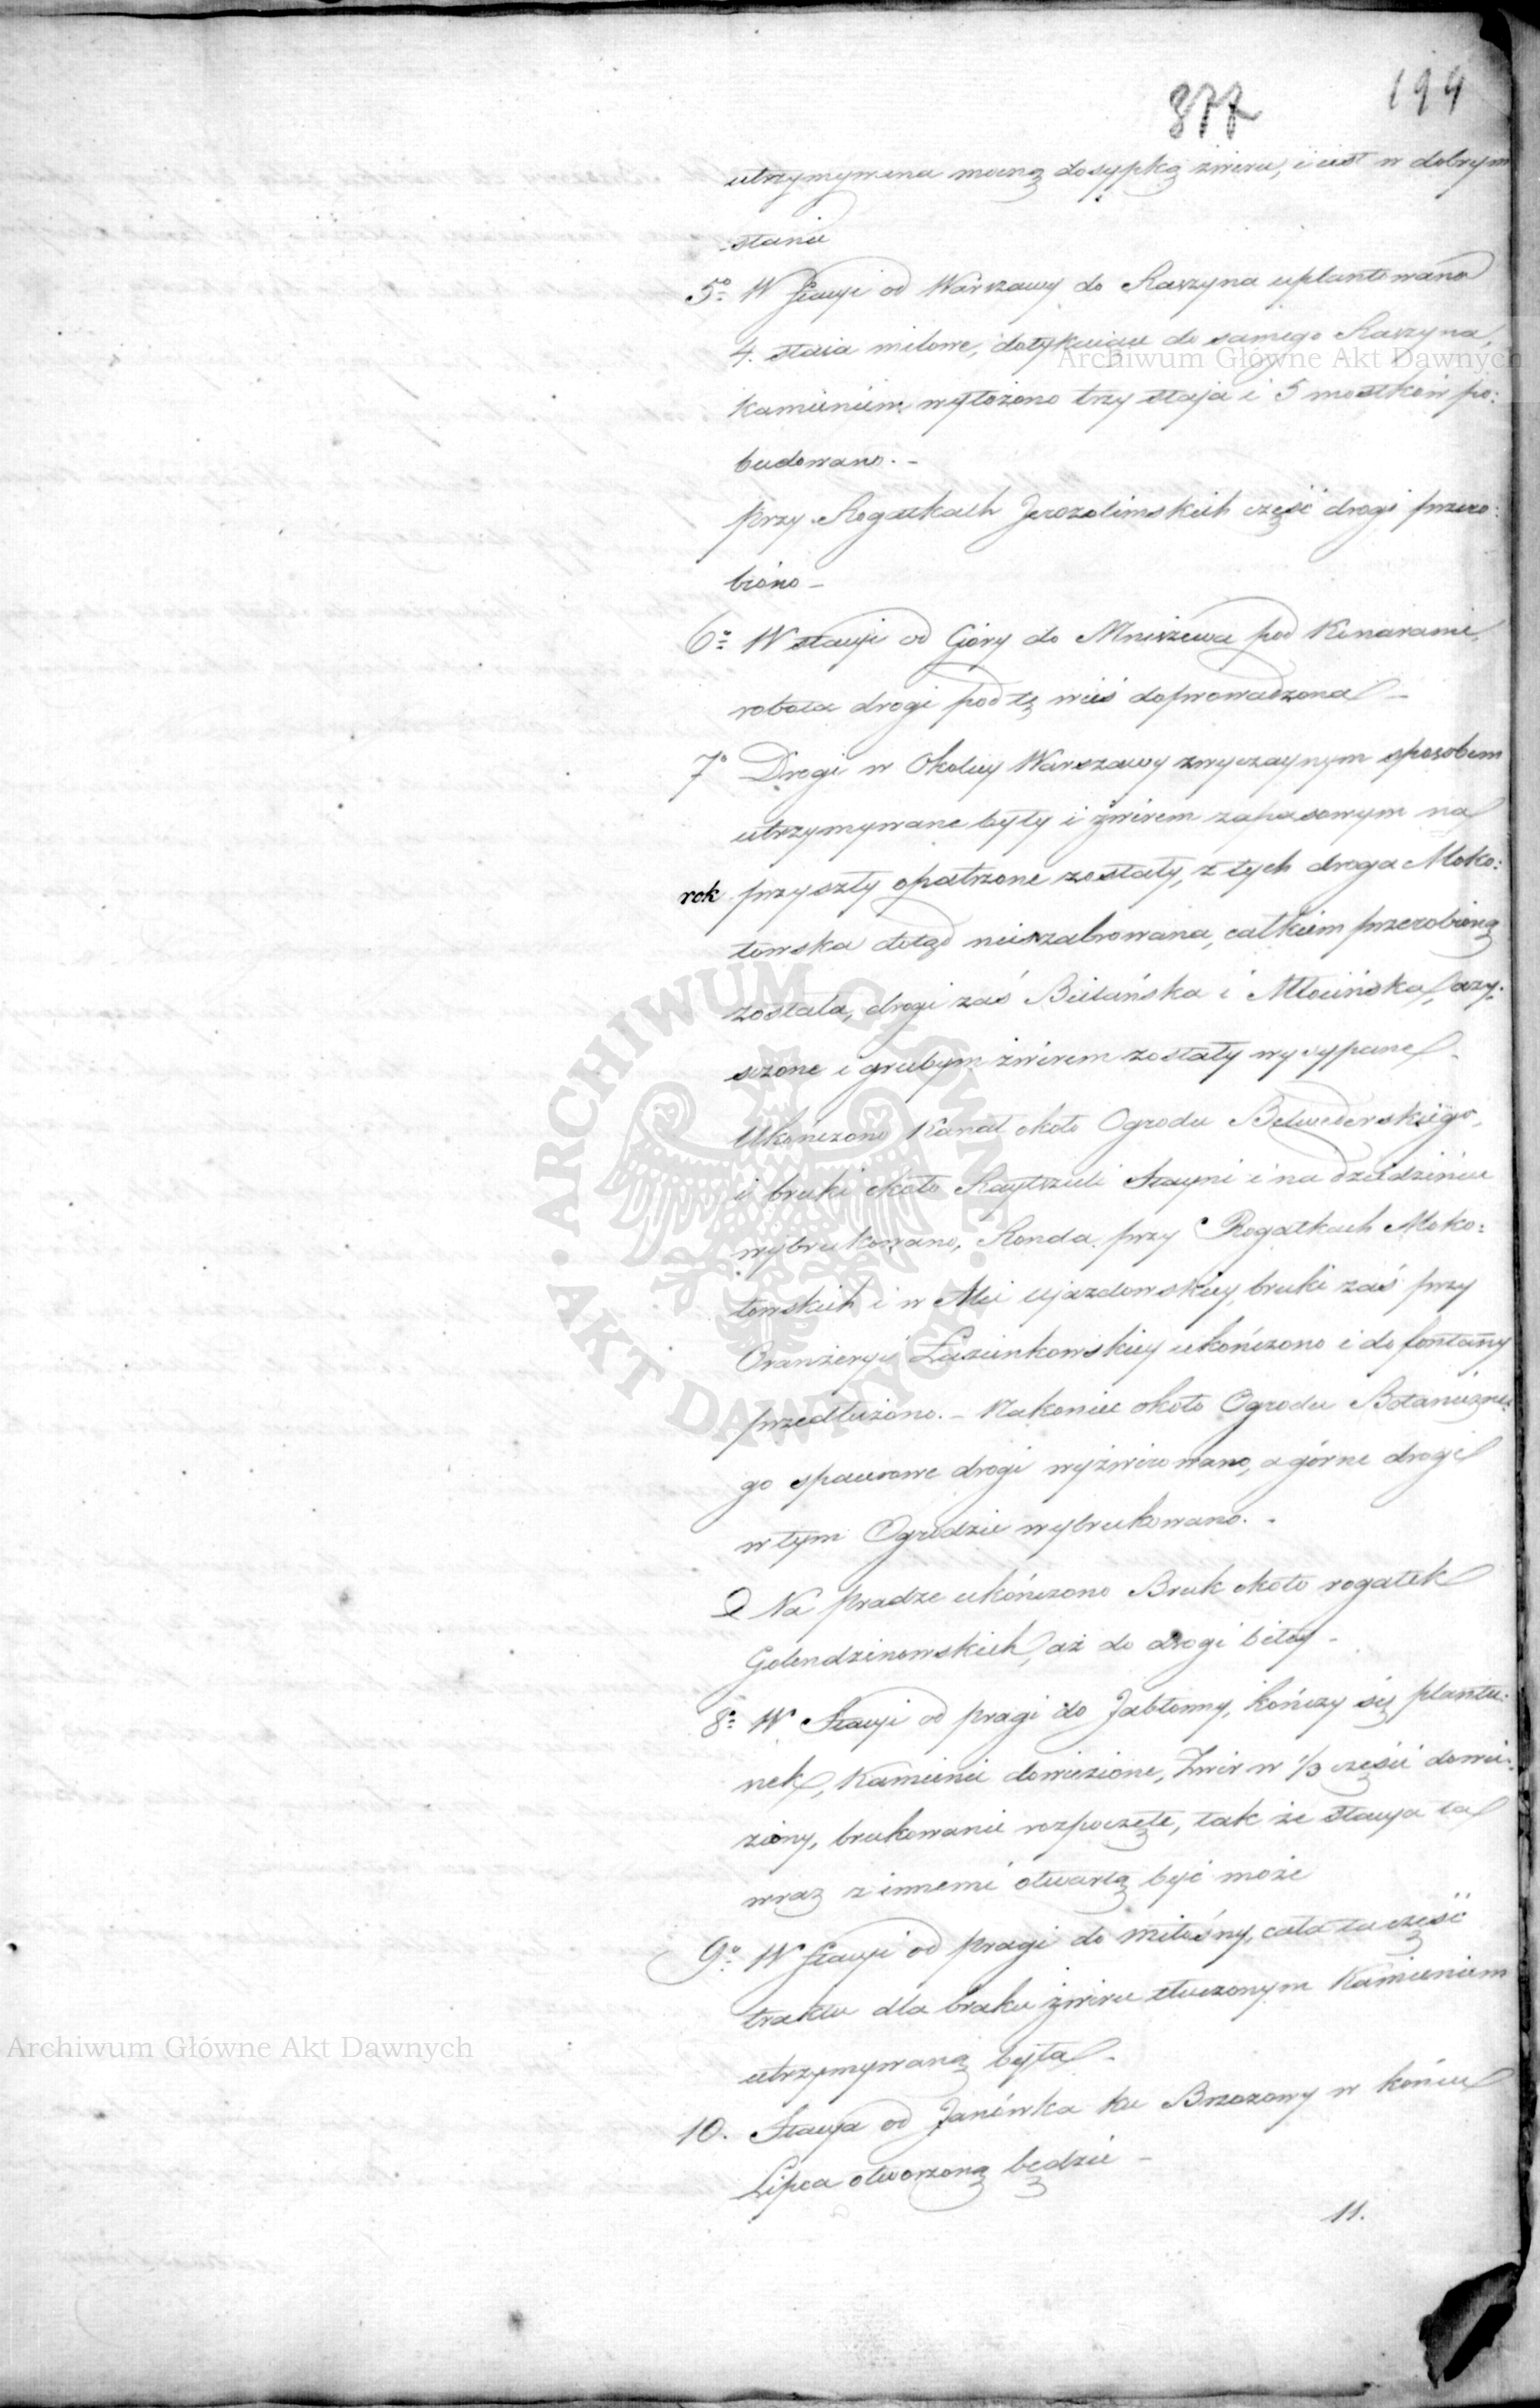 877 194
utrzymywana mocną dosypką żwiru, i iest w dobrym
stanie
5º W Stacyi od Warszawy do Raszyna uplantowano
4. staia milowe, dotykaiące do samego Raszyna,
Archiwum Główne Akt Dawnych
kamieniem wyłożono trzy staja i 5 mostków po:
budowano. –
przy Rogatkach Jerozolimskich część drogi przero:
biono –
6º W stacyi od Góry do Mniszewa pod Konarami,
robota drogi pod tę wieś doprowadzona –
7º Drogi w Okolicy Warszawy zwyczaynym sposobem
utrzymywane były i żwirem zapasowym na
rok przyszły opatrzone zostały, z tych droga Moko:
towska dotąd nieszabrowana, całkiem przerobioną
została, drogi zaś Bielańska i Młocińska, czy:
szczone i grubym żwirem zostały wysypane –
Ukończono Kanał około Ogrodu Belwederskiego,
i bruki około Raytszuli Stayni i na dziedzińcu
wybrukowano, Ronda przy Rogatkach Moko:
towskich i w Alei ujazdowskiey, bruki zaś przy
Oranżeryi Łazienkowskiey ukończono i do fontanny
przedłużono. – Nakoniec około Ogrodu Botaniczne:
go spacerowe drogi wyżwirowano, a górne drogi
w tym Ogrodzie wybrukowano. –
Na pradze ukończono Bruk około rogatek
Golendzinowskich, aż do drogi bitey –
8º W Stacyi od pragi do Jabłonny, kończy się plantu:
nek, Kamienie dowiezione, Żwir w 1/3 części dowie:
ziony, brukowanie rozpoczęte, tak że Stacya ta
wraz z innemi otwartą być może
9º W Stacyi od pragi do miłosny, cała ta część
traktu dla braku żwiru tłuczonym Kamieniem
utrzymywaną była –
Archiwum Główne Akt Dawnych
10. Stacya od Janówka ku Brzozowy w końcu
Lipca otworzoną będzie –
11.
ARCHIWUM GŁÓWNE AKT DAWNYCH